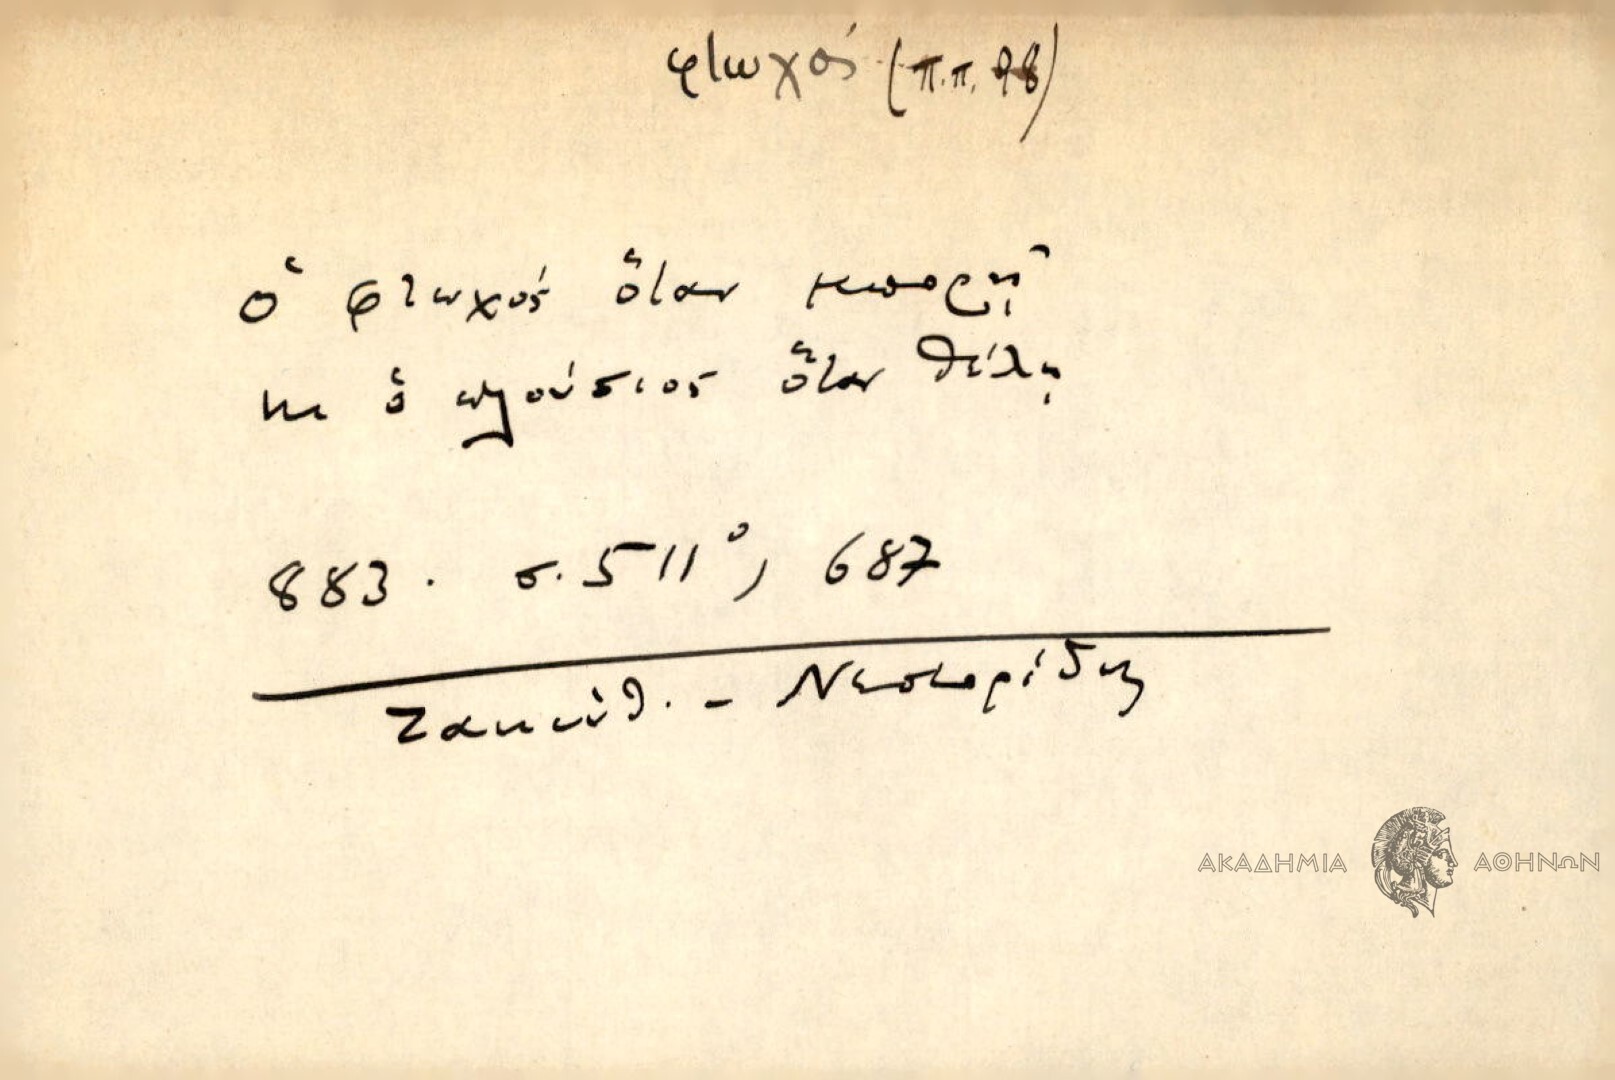 φτωχός (π.π. 98)
Ὁ φτωχός ὅταν μπορῇ
κι ὁ πλούσιος ὅταν θέλῃ
883. σ. 511⁰, 687
Ζακύνθ. - Νεστορίδης
ΑΚΑΔΗΜΙΑ ΑΘΗΝΩΝ